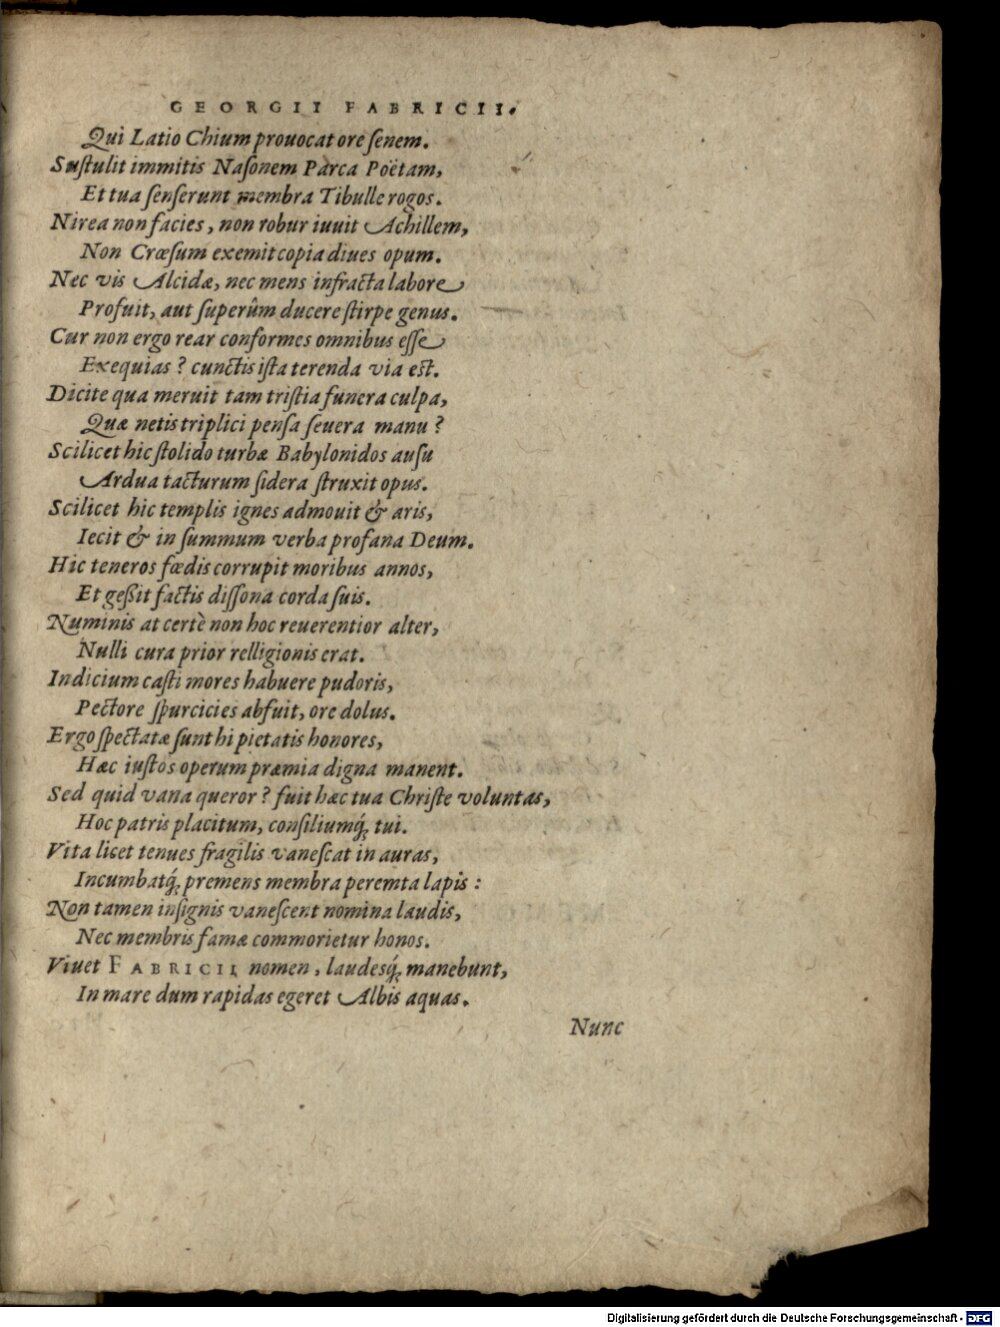 GEORGII FABRICII.
Qui Latio Chium prouocat ore ſenem.
Suſtulit immitis Naſonem Parca Poëtam,
Et tua ſenſerunt membra Tibulle rogos.
Nirea non facies, non robur iuuit Achillem,
Non Crœſum exemit copia diues opum.
Nec vis Alcidæ, nec mens infracta labore
Profuit, aut ſuperûm ducere ſtirpe genus.
Cur non ergo rear conformes omnibus eſſe
Exequias? cunctis iſta terenda via eſt.
Dicite qua meruit tam triſtia funera culpa,
Quæ netis triplici penſa ſeuera manu?
Scilicet hic ſtolido turbæ Babylonidos auſu
Ardua tacturum ſidera ſtruxit opus.
Scilicet hic templis ignes admouit & aris,
Iecit & in ſummum verba profana Deum.
Hic teneros fœdis corrupit moribus annos,
Et geßit factis diſſona corda ſuis.
Numinis at certè non hoc reuerentior alter,
Nulli cura prior relligionis erat.
Indicium caſti mores habuere pudoris,
Pectore ſpurcicies abfuit, ore dolus.
Ergo ſpectatæ ſunt hi pietatis honores,
Hæc iuſtos operum præmia digna manent.
Sed quid vana queror? fuit hæc tua Chriſte voluntas,
Hoc patris placitum, conſiliumq́; tui.
Vita licet tenues fragilis vaneſcat in auras,
Incumbatq́; premens membra peremta lapis:
Non tamen inſignis vaneſcent nomina laudis,
Nec membris famæ commorietur honos.
Viuet FABRICII nomen, laudesq́; manebunt,
In mare dum rapidas egeret Albis aquas.
Nunc
Digitalisierung gefördert durch die Deutsche Forschungsgemeinschaft - DFG